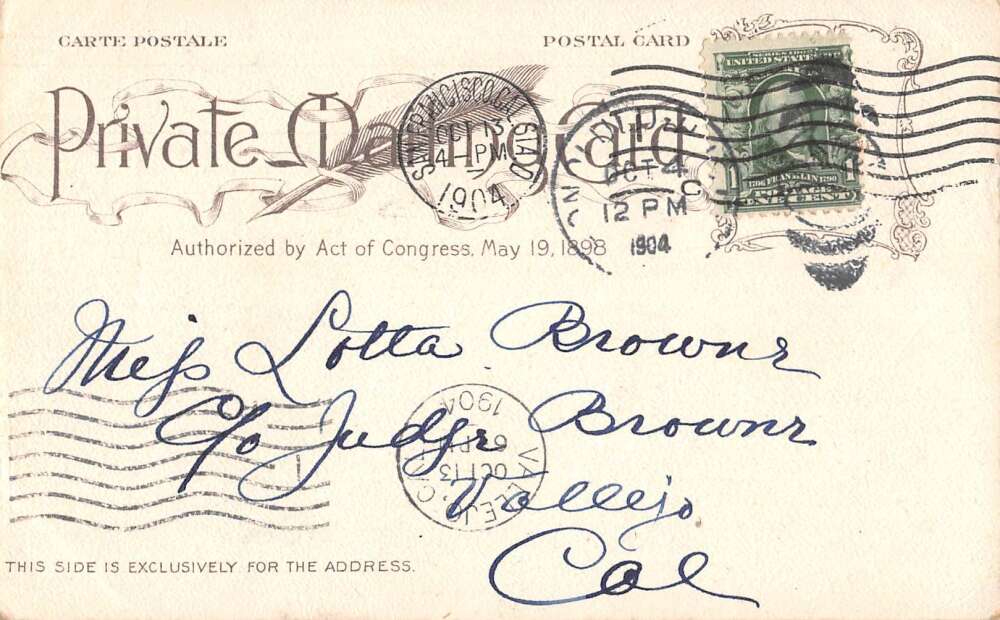 CARTE POSTALE
POSTAL CARD
Private Mailing Card
SAN FRANCISCO, CAL. STA. D
OCT 13
4 — PM
1904
HONOLULU
OCT 4
12 PM
1904
SERIES 1902
UNITED STATES
1706 FRANKLIN 1790
ONE CENT
Authorized by Act of Congress, May 19, 1898
Miss Lotta Browne
c/o Judge Browne
Vallejo
Cal
VALLEJO, CAL.
OCT 13
6 PM
1904
1
THIS SIDE IS EXCLUSIVELY FOR THE ADDRESS.